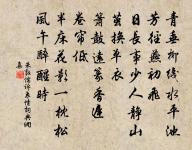 青垂柳綫水平池
芳徑燕初飛
日長事少人靜山
繭換單衣
簫鼓遠篆香遲
卷簾低
半床花影一枕松
風午醉醒時
朱敦儒訴衷情詞